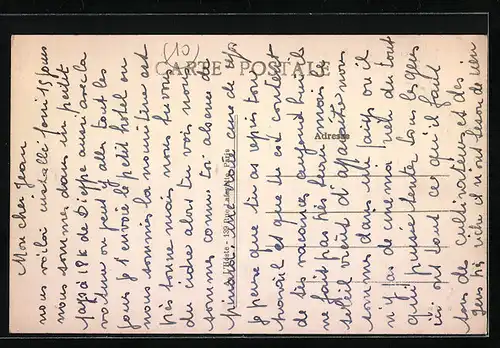 (10)
CARTE POSTALE
Adresse
Mon cher Jean
nous voilà installé pour 15 jours
nous sommes dans un petit
à 18 k de Dieppe avec la
voiture on peut y aller tout les
jours je t'envoie le petit hotel ou
nous sommes la nourriture est
très bonne mais nous bu vous
du cidre alors tu vois nous
sommes comme toi absence de
cure de
je pense que tu as repris ton
travail et que tu est content
de tes vacances aujourd'hui il
ne fait pas très beau mais le
soleil vient d'apparaitre nous
sommes dans un pays ou il
n'y a pas de cinema rien du tout
qui puisse tenter tous les gens
ici ont tout ce qu'il faut
sous des cultivateurs et des
gens très riche ils n'ont besoin de rien